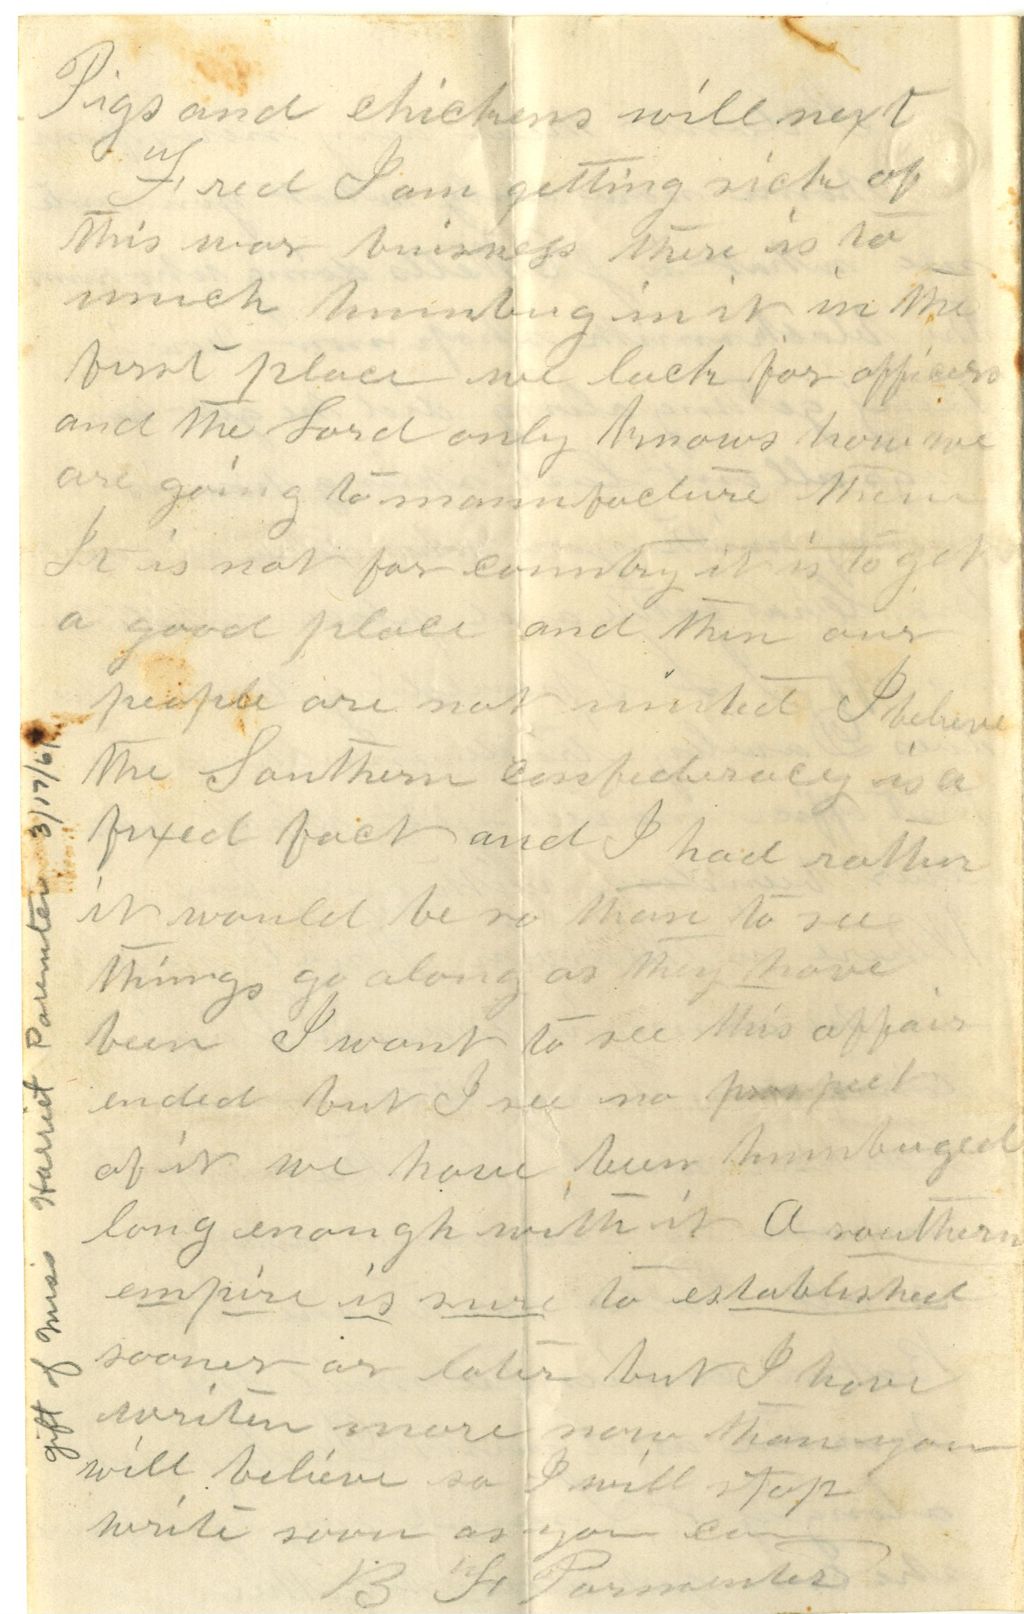 Pigs and chickens will next
Fred I am getting sick of
this war buisness there is to
much humbug in it in the
first place we lack for officers
and the Lord only knows how we
are going to manufacture them
It is not for country it is to get
a good place and then our
people are not united I believe
the Southern confederacy is a
fixed fact and I had rather
it would be so than to see
things go along as they have
been I want to see this affair
ended but I see no prospect
of it we have been humbuged
long enough with it A southern
empire is sure to established
sooner or later but I have
writen more now than you
will believe so I will stop
write soon as you can
B F Parmenter
gift of Miss Harriet Paremter 3/17/61